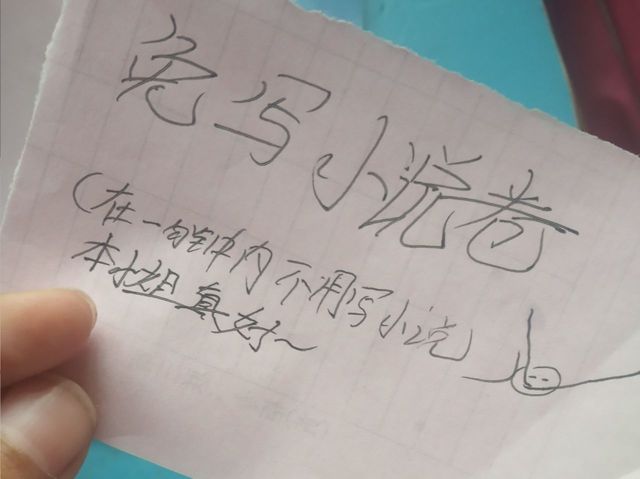 免写小说卷
(在一分钟内不用写小说)
本小姐真好~